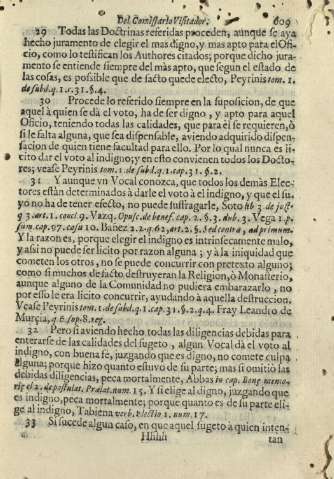 Del Comissario Visitador. 609
29 Todas las Doctrinas referidas proceden, aunque se aya
hecho juramento de elegir el mas digno, y mas apto para el Ofi-
cio, como lo testifican los Authores citados; porque dicho jura-
mento se entiende siempre del màs apto, que segun el estado de
las cosas, es possible que de facto quede electo, Peyrinis tom. 1.
de subd. q. 1. s. 31. §. 4.
30 Procede lo referido siempre en la suposicion, de que
aquel à quien se dà el voto, ha de ser digno, y apto para aquel
Oficio, teniendo todas las calidades, que para èl se requieren, ò
si le falta alguna, que sea dispensable, aviendo adquirido dispen-
sacion de quien tiene facultad para ello. Por lo qual nunca es li-
cito dar el voto al indigno; y en esto convienen todos los Docto-
res; vease Peyrinis tom. 1. de subd. q. 1. cap. 31. §. 2.
31 Y aunque vn Vocal conozca, que todos los demàs Elec-
tores estàn determinados à darle el voto à el indigno, y que el su-
yo no ha de tener efecto, no puede suffragarle, Soto
q 3. art. 1. concl. 9. Vazq. Opusc. de benef. cap. 2. §. 3. dub. 3. Vega 1. p.
sum. cap. 97. casu 10. Bañez 2. 2. q. 62. art. 2. §. Sed contra, ad primum.
Y la razon es, porque elegir el indigno es intrinsecamente malo,
y assi no puede ser licito por razon alguna; y à la iniquidad que
cometen los otros, no se puede concurrir con pretexto alguno;
como si muchos de facto destruyeran la Religion, ò Monasterio,
aunque alguno de la Comunidad no pudiera embarazarlo, no
por esso le era licito concurrir, ayudando à aquella destruccion.
Vease Peyrinis tom. 1. de subd. q. 1. cap. 31. §. 2. q. 4. Fray Leandro de
Murcia, q 6. sup. 8. reg.
32 Pero si aviendo hecho todas las diligencias debidas para
enterarse de las calidades del sugeto, algun Vocal dà el voto al
indigno, con buena fè, juzgando que es digno, no comete culpa
alguna; porque hizo quanto estuvo de su parte; mas si omitiò las
debidas diligencias, peca mortalmente, Abbas in cap. Bonæ memo-
riæ el 2. de postulat. Prælat. num. 15. Y si elige al digno, juzgando que
es indigno, peca mortalmente; porque quanto es de su parte eli-
ge al indigno, Tabiena verb. Electio 1. num. 17.
33 Si sucede algun caso, en que aquel sugeto à quien inten-
Hhhh tan